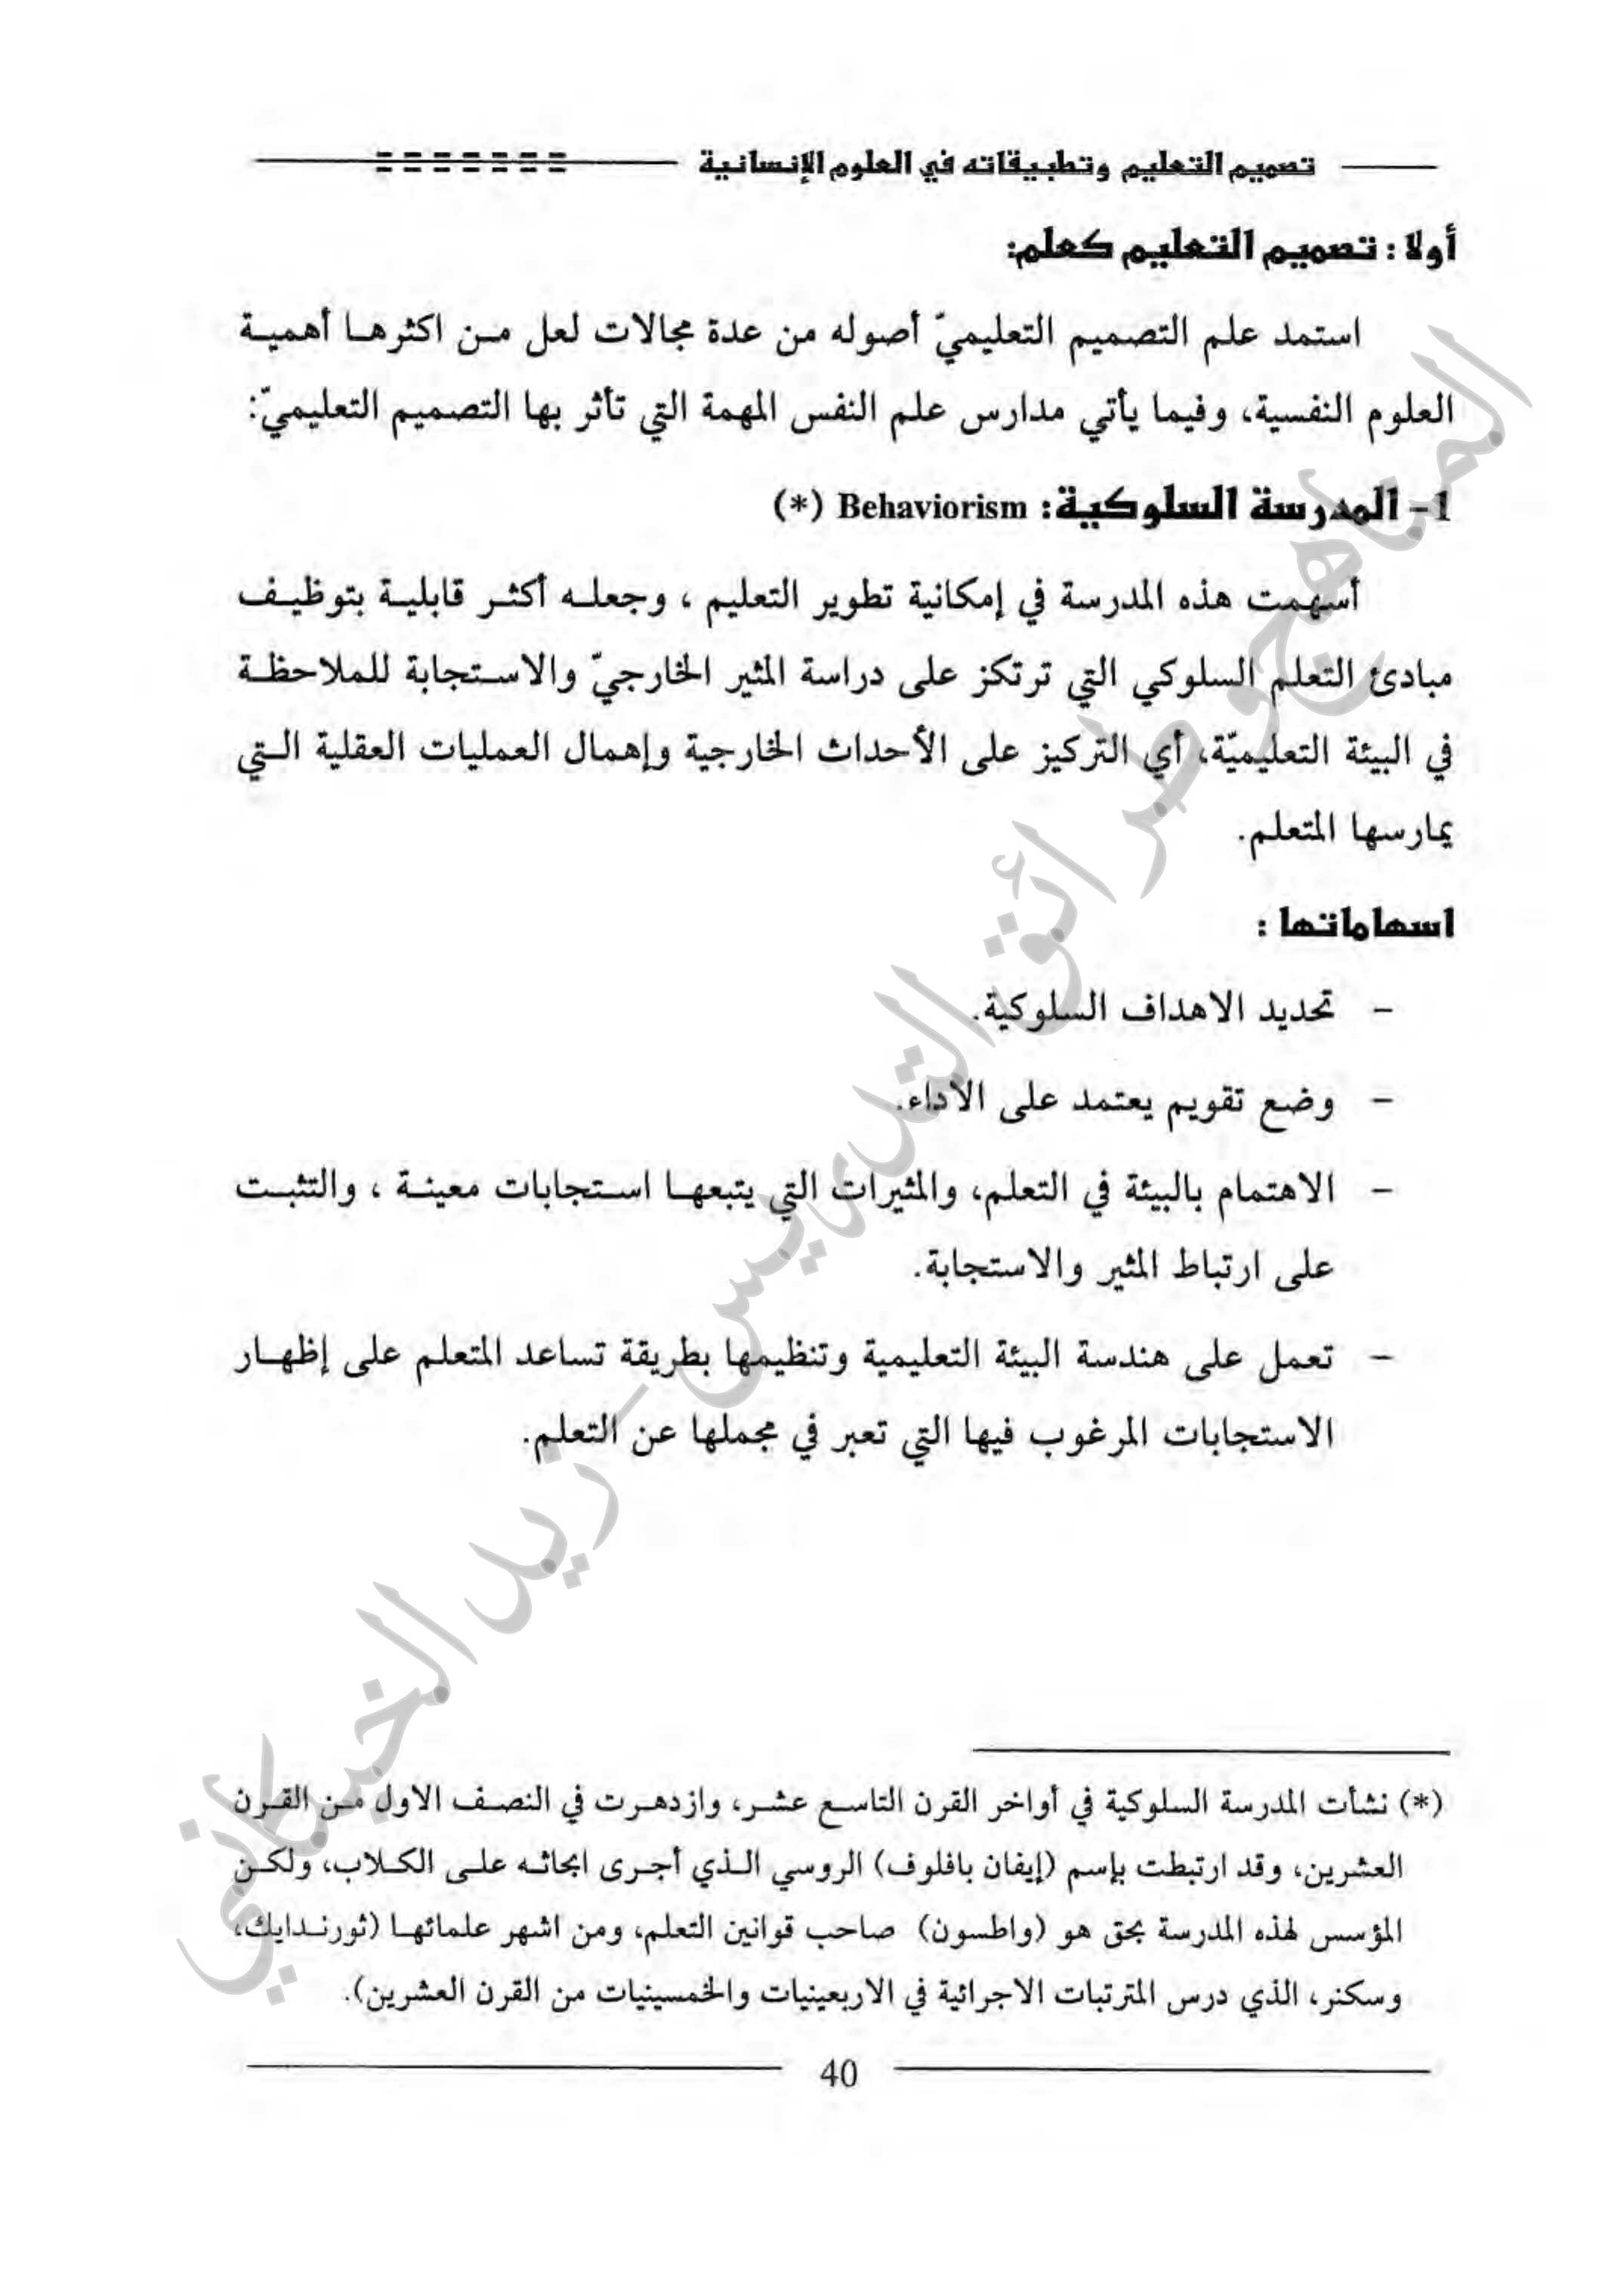 تصميم التعليم وتطبيقاته في العلوم الإنسانية
أولا : تصميم التعليم كعلم:
استمد علم التصميم التعليميّ أصوله من عدة مجالات لعل من اكثرها أهمية
العلوم النفسية، وفيما يأتي مدارس علم النفس المهمة التي تأثر بها التصميم التعليميّ:
1- المدرسة السلوكية: Behaviorism (*)
أسهمت هذه المدرسة في إمكانية تطوير التعليم ، وجعله أكثر قابلية بتوظيف
مبادئ التعلم السلوكي التي ترتكز على دراسة المثير الخارجيّ والاستجابة للملاحظة
في البيئة التعليميّة، أي التركيز على الأحداث الخارجية وإهمال العمليات العقلية التي
يمارسها المتعلم.
اسهاماتها :
- تحديد الاهداف السلوكية.
- وضع تقويم يعتمد على الاداء.
- الاهتمام بالبيئة في التعلم، والمثيرات التي يتبعها استجابات معينة ، والتثبت
على ارتباط المثير والاستجابة.
- تعمل على هندسة البيئة التعليمية وتنظيمها بطريقة تساعد المتعلم على إظهار
الاستجابات المرغوب فيها التي تعبر في مجملها عن التعلم.
المناهج وطرائق التدريس - زيد الخيكاني
(*) نشأت المدرسة السلوكية في أواخر القرن التاسع عشر، وازدهرت في النصف الاول من القرن
العشرين، وقد ارتبطت بإسم (إيفان بافلوف) الروسي الذي أجرى ابحاثه على الكلاب، ولكن
المؤسس لهذه المدرسة بحق هو (واطسون) صاحب قوانين التعلم، ومن اشهر علمائها (ثورندايك،
وسكنر، الذي درس المترتبات الاجرائية في الاربعينيات والخمسينيات من القرن العشرين).
40